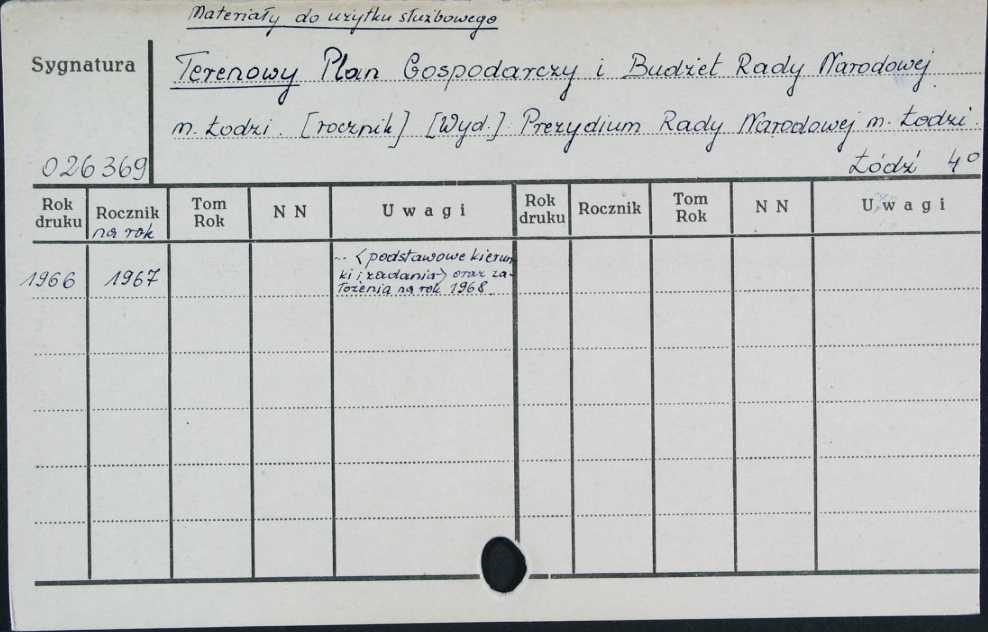 Materiały do użytku służbowego
Sygnatura
Terenowy Plan Gospodarczy i Budżet Rady Narodowej
m. Łodzi. [rocznik] [Wyd.]: Prezydium Rady Narodowej m. Łodzi.
026369
Łódź 4°
Rok druku Rocznik na rok Tom Rok N N Uwagi Rok druku Rocznik Tom Rok N N Uwagi
1966 1967 .. <podstawowe kierun
ki i zadania> oraz za-
łożenia na rok 1968.